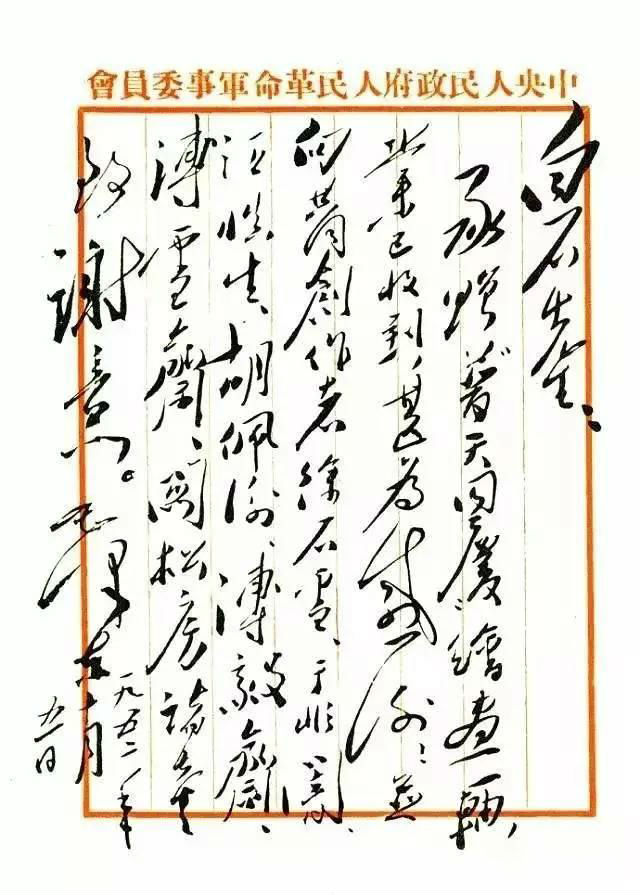 中央人民政府人民革命軍事委員會
白石先生：
承贈普天同慶繪畫一軸，
業已收到，甚为感謝！並
向共同創作者徐石雪、于非闇、
汪慎生、胡佩衡、溥毅齋、
溥雪齋、関松房諸先生
致謝意。毛澤東
一九五二年
十月
五日